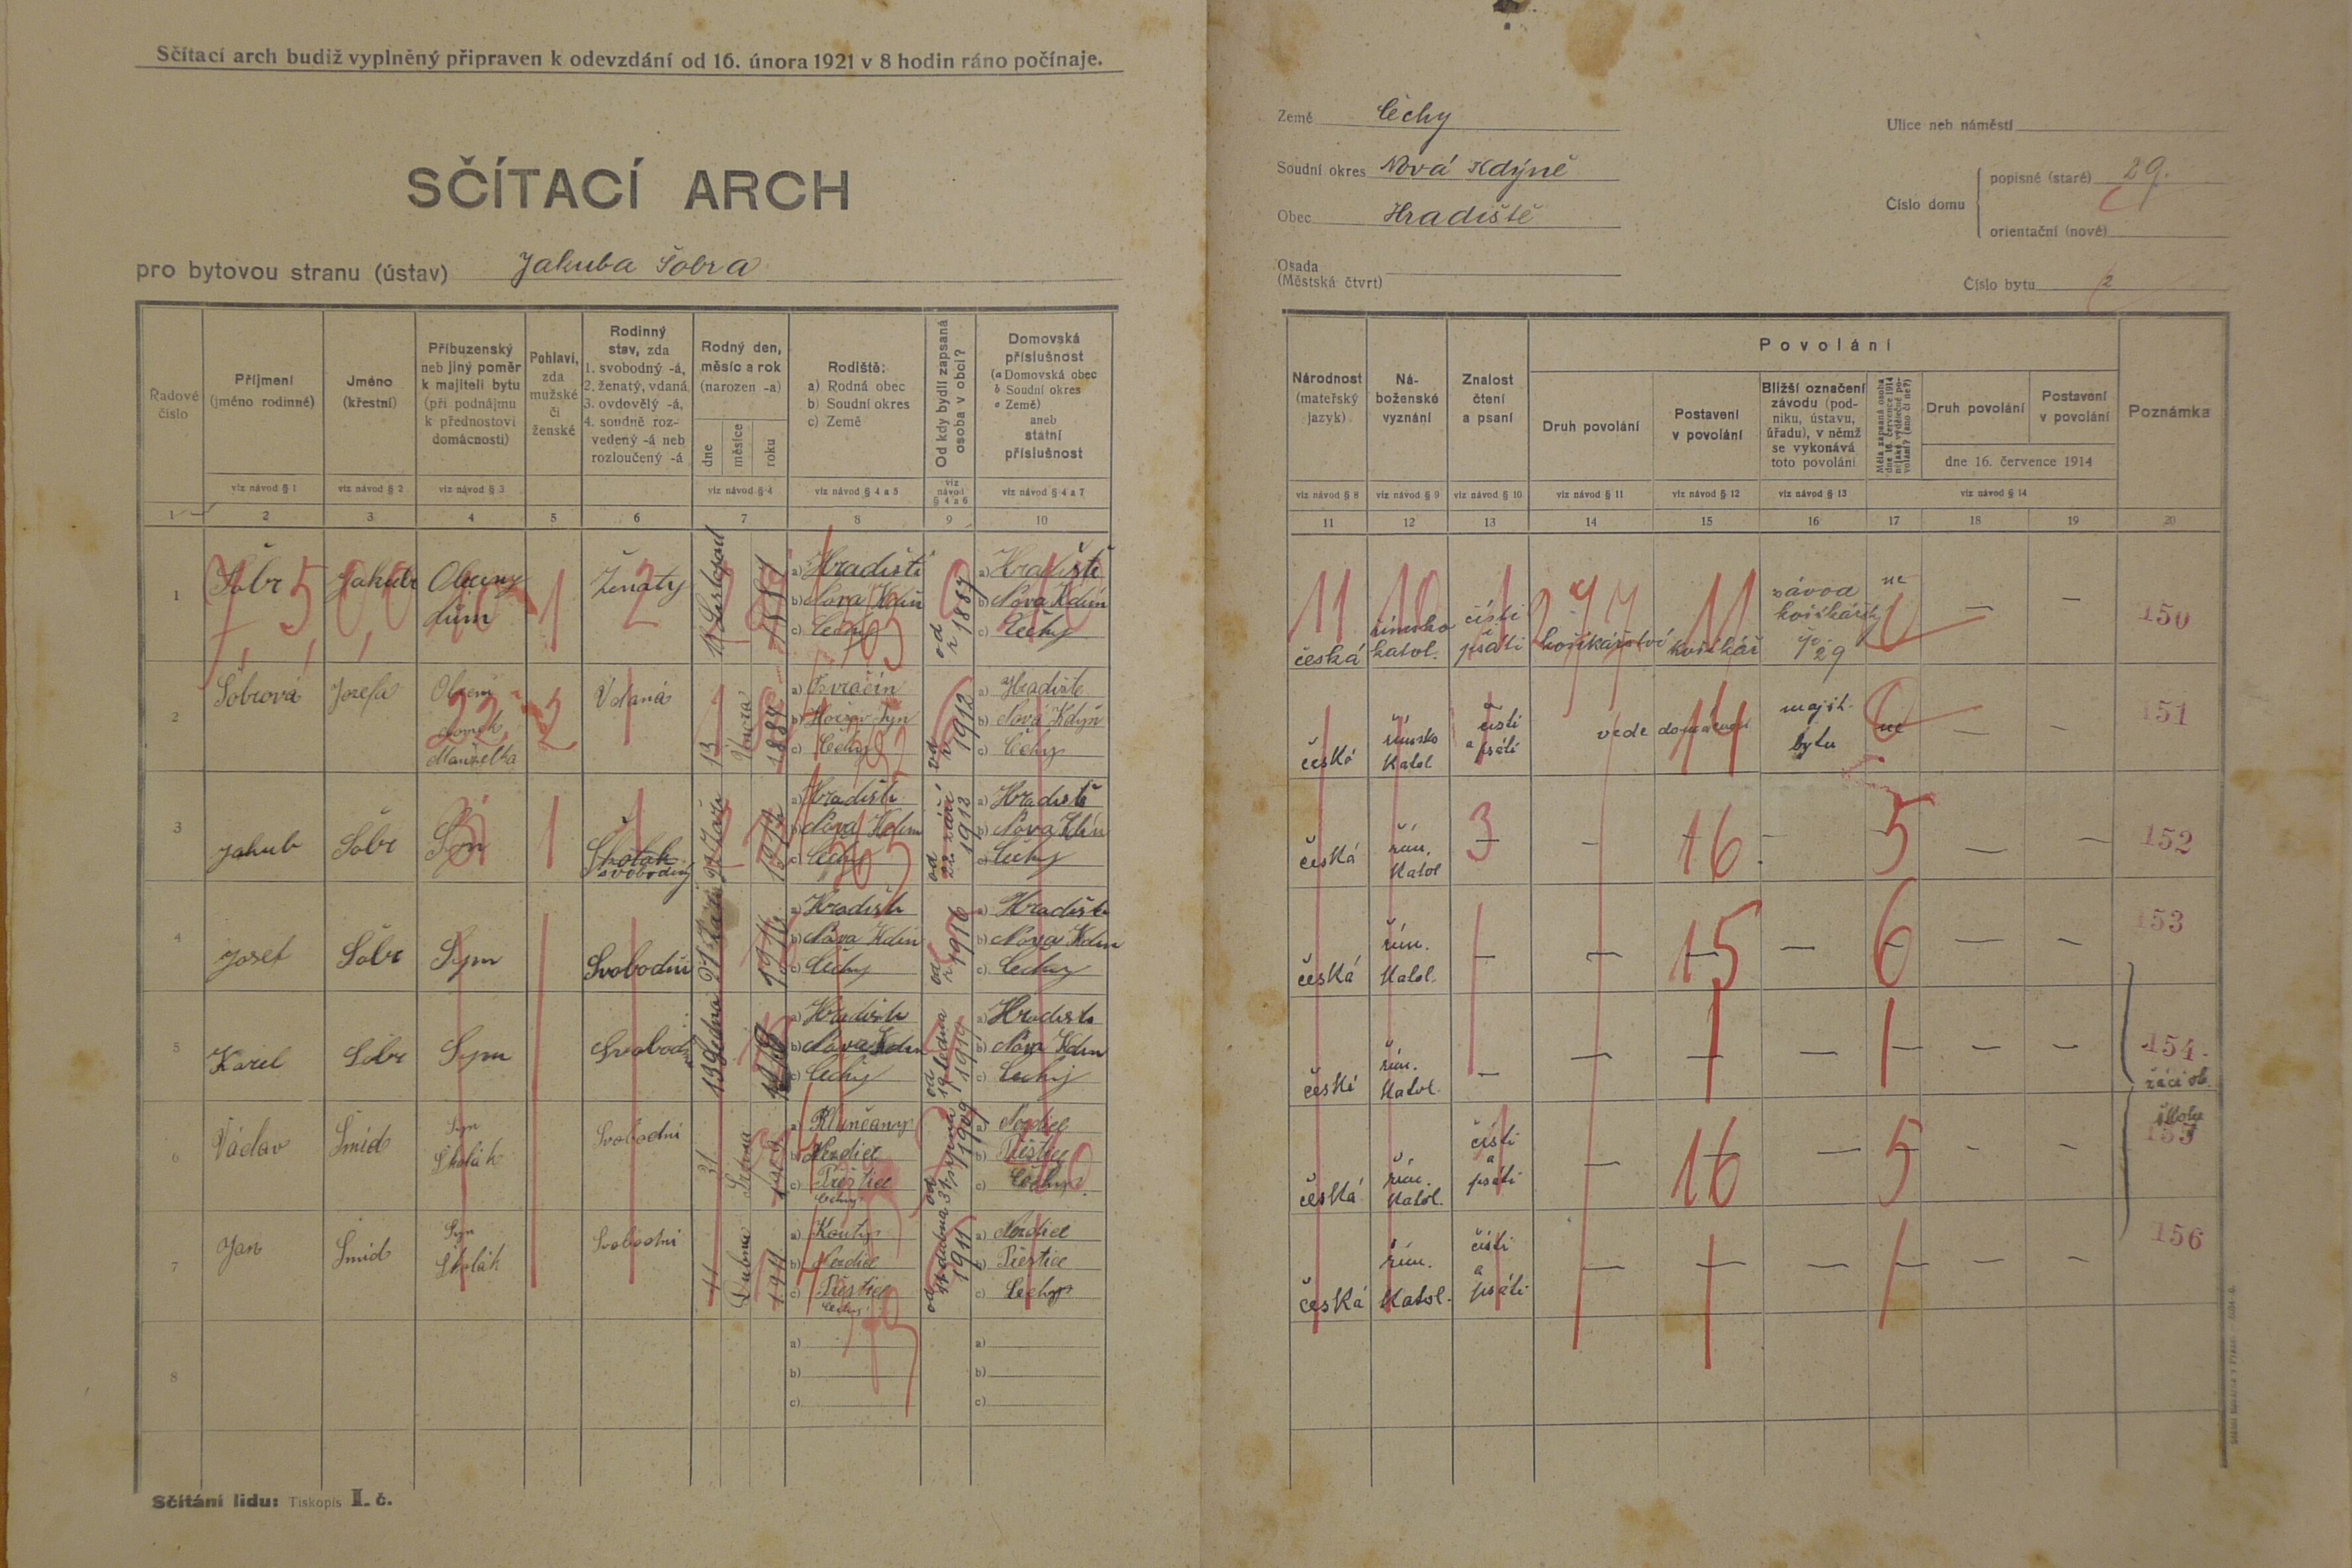 Sčítací arch budiž vyplněný připraven k odevzdání od 16. února 1921 v 8 hodin ráno počínaje.
SČÍTACÍ ARCH
pro bytovou stranu (ústav) Jakuba Šobra
Země Čechy
Soudní okres Nová Kdýně
Obec Hradiště
Osada
(Městská čtvrt)
Ulice neb náměstí
Číslo domu
popisné (staré) 29.
orientační (nové)
Číslo bytu 2
Řadové číslo
Příjmení (jméno rodinné)
Jméno (křestní)
Příbuzenský neb jiný poměr k majiteli bytu (při podnájmu k přednostovi domácnosti)
Pohlaví, zda mužské či ženské
Rodinný stav, zda 1. svobodný -á, 2. ženatý, vdaná 3. ovdovělý -á, 4. soudně rozvedený -á neb rozloučený -á
Rodný den, měsíc a rok (narozen -a)
dne měsíce roku
Rodiště: a) Rodná obec b) Soudní okres c) Země
Od kdy bydlí zapsaná osoba v obci?
Domovská příslušnost (a Domovská obec b Soudní okres c Země) aneb státní příslušnost
Národnost (mateřský jazyk)
Náboženské vyznání
Znalost čtení a psaní
Povolání
Druh povolání
Postavení v povolání
Bližší označení závodu (podniku, ústavu, úřadu), v němž se vykonává toto povolání
Měla zapsaná osoba dne 16. července 1914 nějaké výdělečné povolání? (ano či ne?)
Druh povolání
Postavení v povolání
dne 16. července 1914
Poznámka
viz návod § 1 viz návod § 2 viz návod § 3 viz návod § 4 viz návod § 4 a 5 viz návod § 4 a 6 viz návod § 4 a 7
viz návod § 8 viz návod § 9 viz návod § 10 viz návod § 11 viz návod § 12 viz návod § 13 viz návod § 14
1 2 3 4 5 6 7 8 9 10
11 12 13 14 15 16 17 18 19 20
1 Šobr Jakub dům 1 Ženatý 2
a) Hradiště
b) Nova Kdin
c) Čechy
od r 1887
a) Hradiště
b) Nova Kdin
c) Čechy
česká římsko katol. čísti i psáti košíkářství košíkář závod čp 29 ne — — 150
2 Šobrová Josefa domek Manželka 2 Vdaná 13 Února 1884
b) Týn
c) Čechy
od r 1912
a) Hradiště
b) Nová Kdyň
c) Čechy
česká římsko katol čísti a psáti vede domácnost majit. bytu ne — — 151
3 Jakub Šobr Syn 1 Školák svobodný 22 Září 1912
a) Hradiště
b) Nova Kdin
c) Čechy
od 22 září 1912
a) Hradiště
b) Nova Kdin
c) Čechy
česká řím. katol 3 — 16 5 — — 152
4 Josef Šobr Syn Svobodni 1916
a) Hradiště
b) Nova Kdin
c) Čechy
od r 1916
a) Hradiště
b) Nova Kdin
c) Čechy
česká řím. katol. — — 15 — 6 — — 153
5 Karel Šobr Syn Svobodni 19 Ledna
a) Hradiště
b) Nova Kdin
c) Čechy
od 19 ledna 1919
a) Hradiště
b) Nova Kdin
c) Čechy
česká řím. katol. — — — — — — — 154
žáci ob. školy
6 Václav Šmíd Syn Školák Svobodni 31
a) Kbinčany
b) Nezdice
c) Přeštice
Čechy
od 31 srpna 1909
a) Nezdice
b) Přeštice
c) Čechy
česká řím. katol. čísti a psáti — 16 — 5 — — 155
7 Jan Šmíd Syn Školák Svobodni 11 Dubna 1911
a) Kouty
b) Nezdice
c) Přeštice
Čechy
od 11 dubna 1911
a) Nezdice
b) Přeštice
c) Čechy
česká řím. katol. čísti a psáti — — — — — — 156
8
a)
b)
c)
a)
b)
c)
Sčítání lidu: Tiskopis I. č.